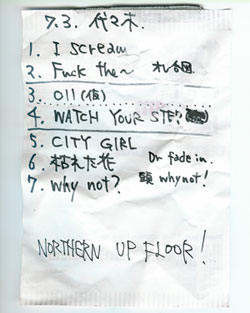 7.3. 代々木.
1. I scream
2. Fuck the~
3. 011(仮)
4. WATCH YOUR STEP
5. CITY GIRL
6. 枯れた花 Dr fade in.
7. why not? why not!
NORTHERN UP FLOOR!